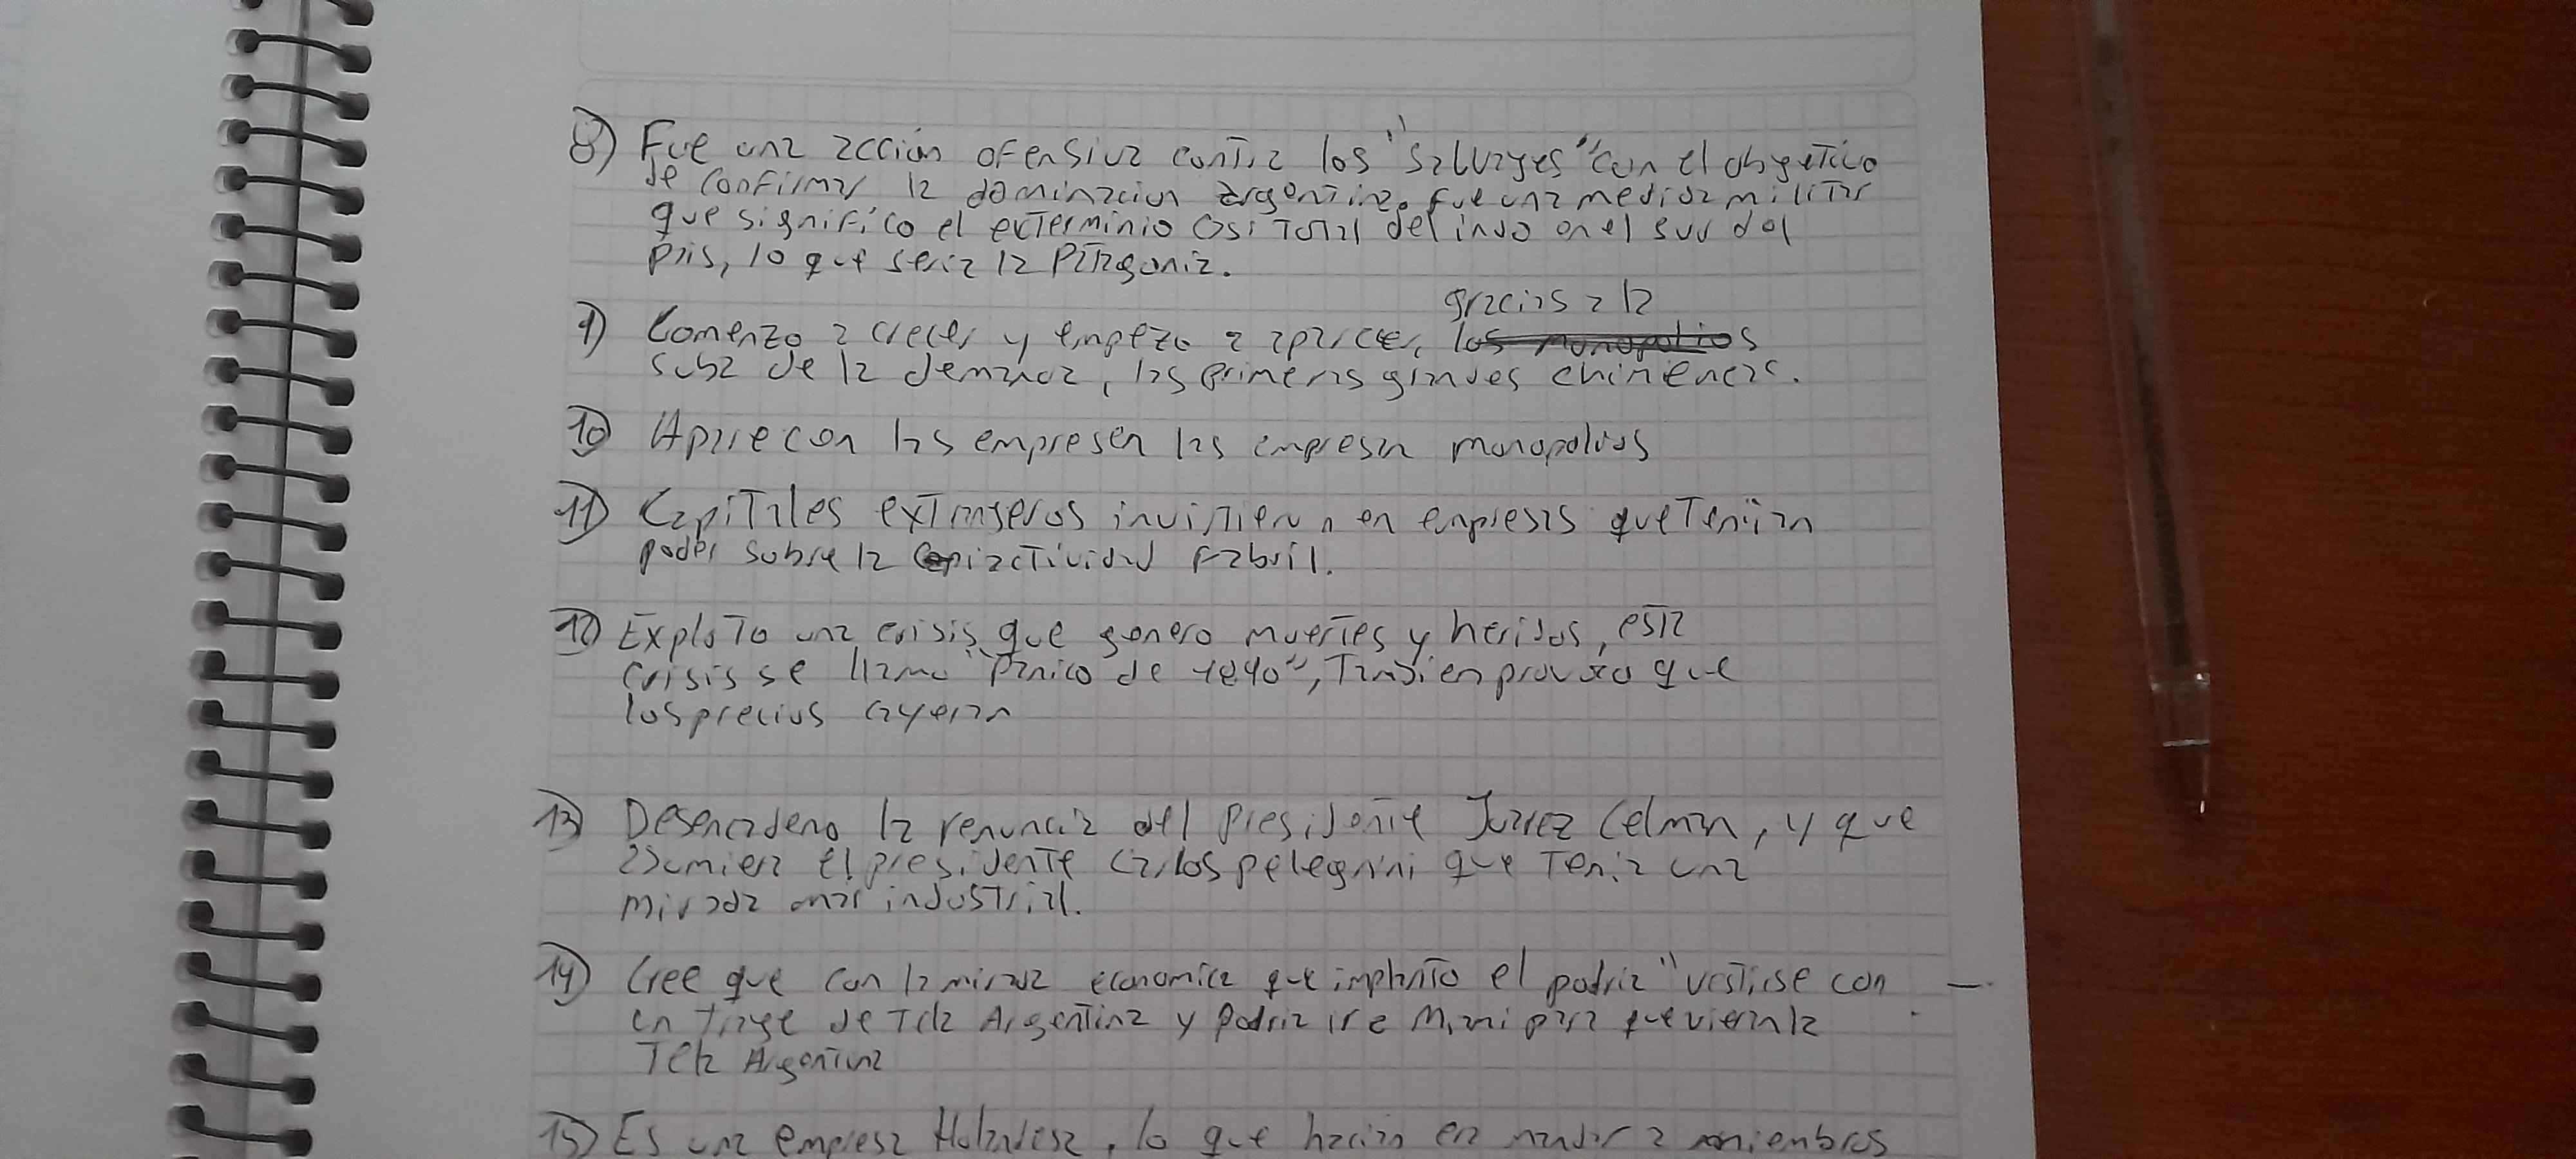 8) Fue una acción ofensiva contra los "salvajes" con el obgetivo
de confirmar la dominacion argentina. Fue una medida militar
que significo el exterminio casi total del indo en el sur del
pais, lo que seria la Patagonia.
gracias a la
9) Comenzo a crecer y empezo a aparecer, los monopolios
suba de la demanda, las primeras grandes chimeneas.
10) Aparecen las empresen las empresa monopolios
11) Capitales extrangeros invirtieron en empresas que tenian
poder sobre la actividad fabril.
12) Exploto una crisis que genero muertes y heridos, esta
crisis se llamo "panico de 1890", tambien provoco que
los precios cayeran
13) Desencadeno la renuncia del presidente Juarez Celman, y que
asumiera el presidente Carlos pelegrini que tenia una
mirada mas industrial.
14) Cree que con la mirada economica que implanto el podria "vestirse con
un trage de tela Argentina y podria ir a Miami para que vieran la
Tela Argentina
15) Es una empresa Holandesa, lo que hacian era mandar a miembros